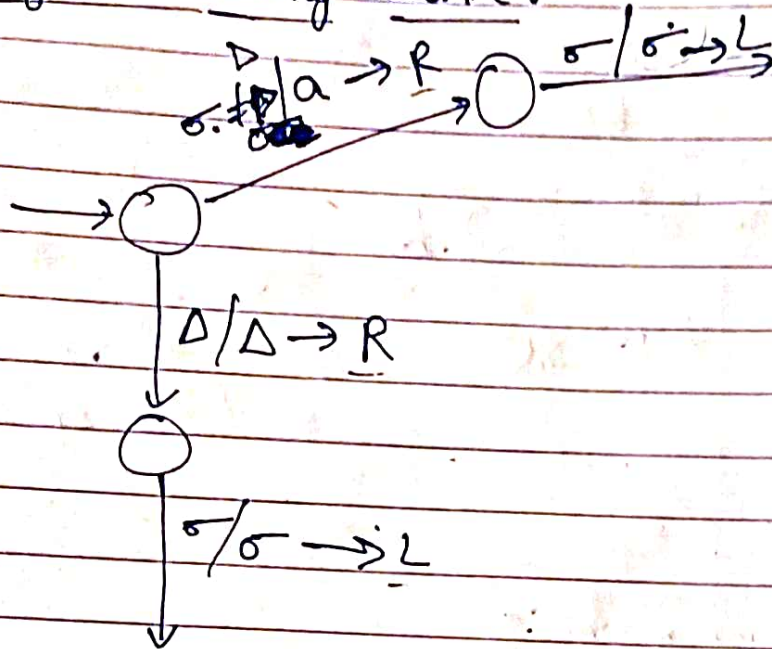 ▷
σ ≠ ▷ | a → R
σ / σ → L
Δ / Δ → R
σ / σ → L